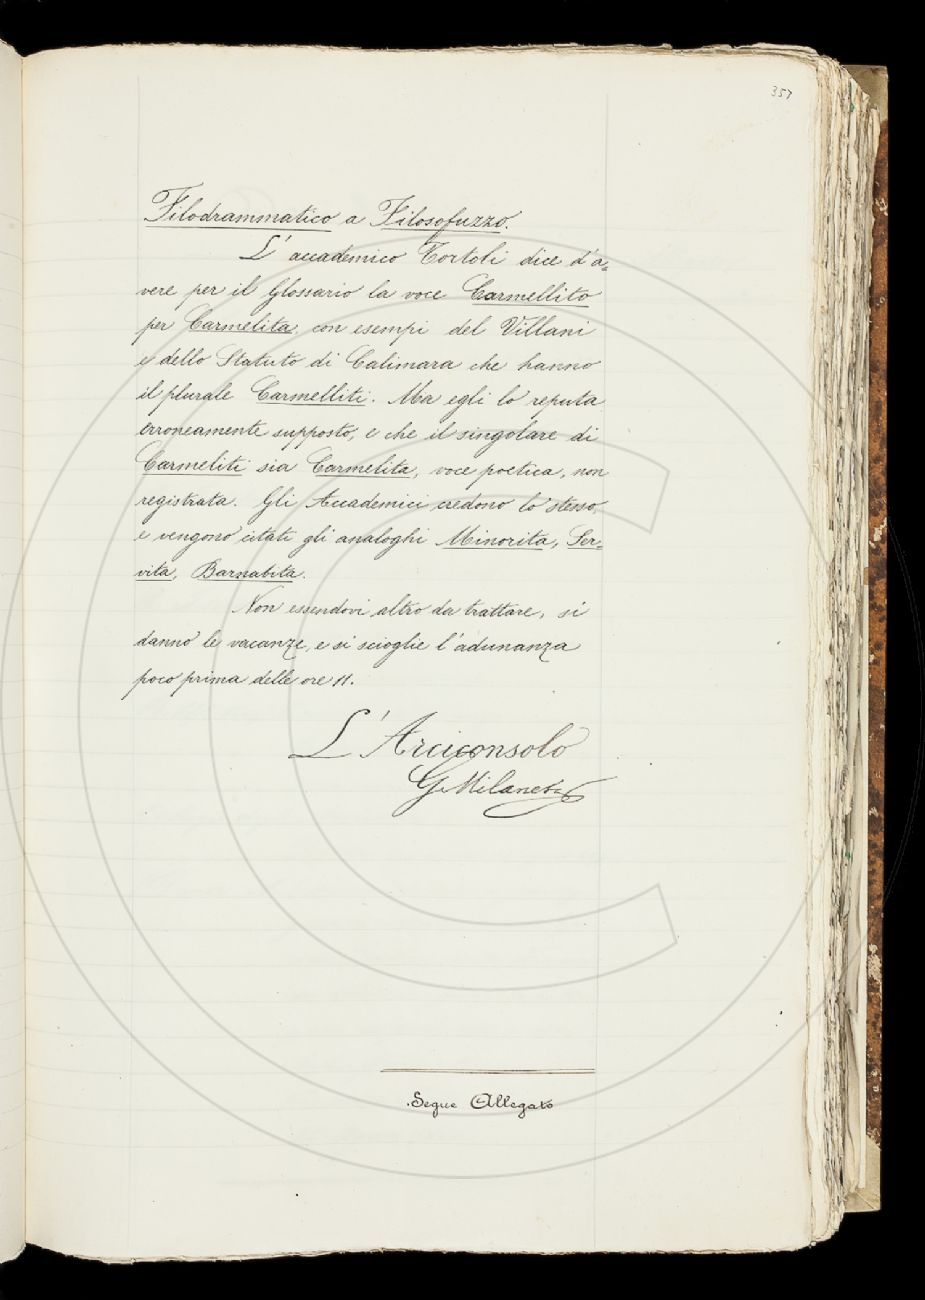 357
Filodrammatico a Filosofuzzo.
L'accademico Tortoli dice d'a=
vere per il Glossario la voce Carmellito
per Carmelita, con esempi del Villani
e dello Statuto di Calimara che hanno
il plurale Carmelliti. Ma egli lo reputa
erroneamente supposto, e che il singolare di
Carmeliti sia Carmelita, voce poetica, non
registrata. Gli Accademici credono lo stesso,
e vengono citati gli analoghi Minorita, Ser=
vita, Barnabita.
Non essendovi altro da trattare, si
danno le vacanze, e si scioglie l'adunanza
poco prima delle ore 11.
L'Arciconsolo
G. Milanesi
Segue Allegato